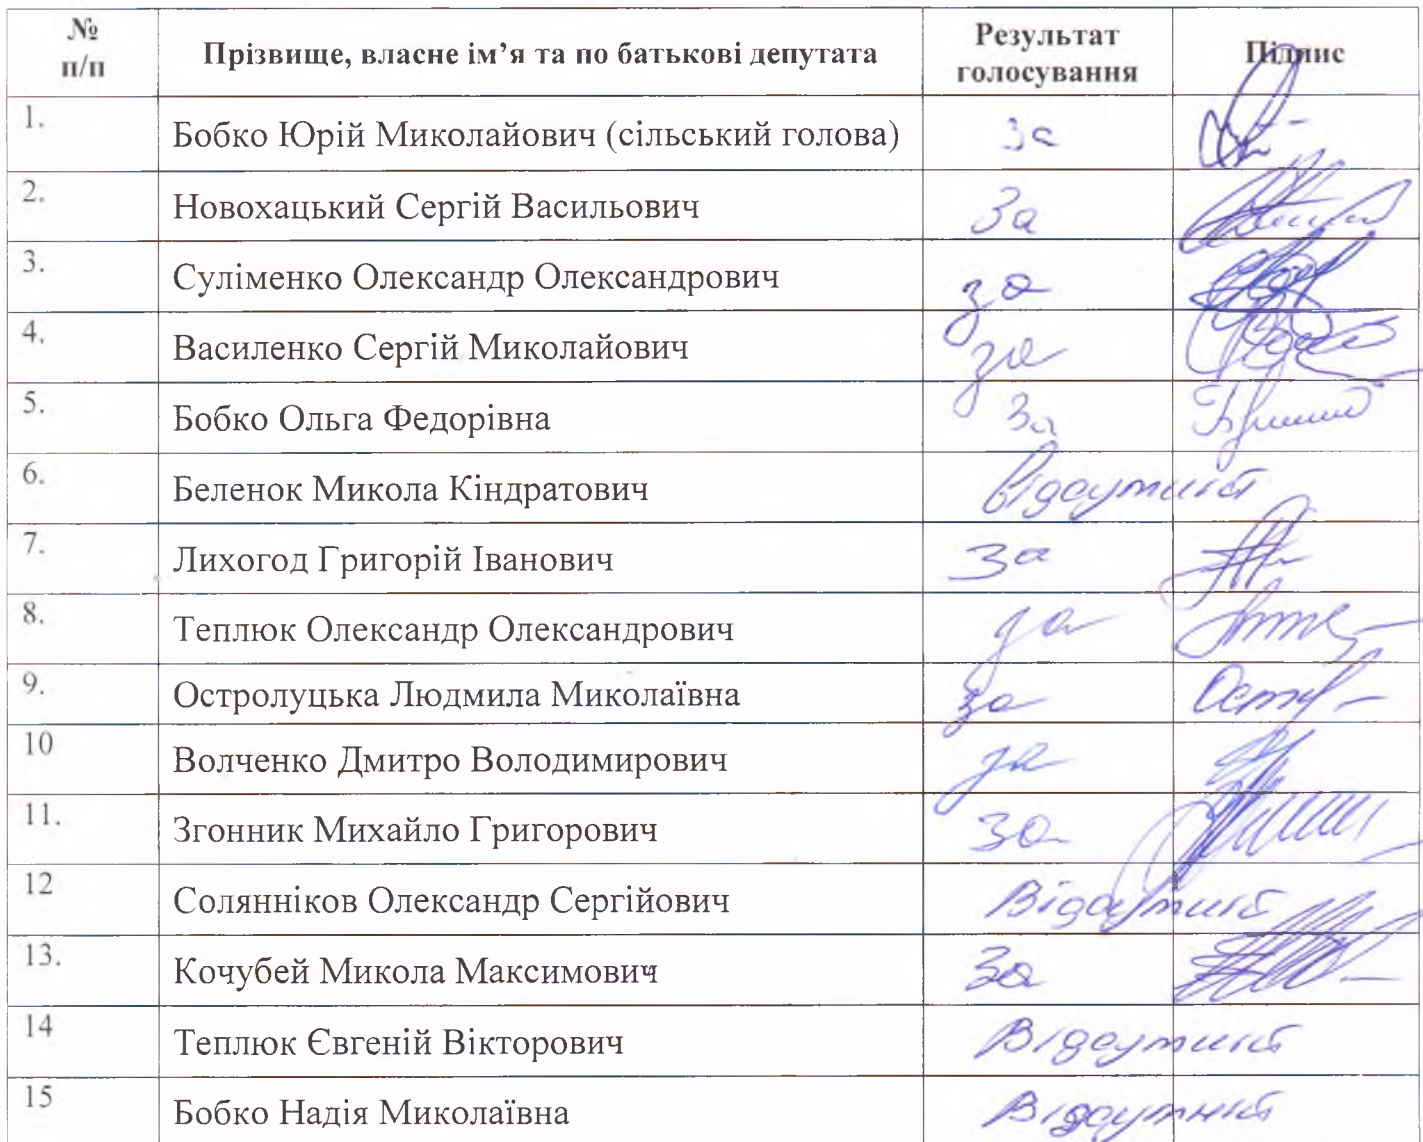 № п/п Прізвище, власне ім’я та по батькові депутата Результат голосування Підпис
1. Бобко Юрій Миколайович (сільський голова) За
2. Новохацький Сергій Васильович За
3. Суліменко Олександр Олександрович за
4. Василенко Сергій Миколайович за
5. Бобко Ольга Федорівна За
6. Беленок Микола Кіндратович відсутній
7. Лихогод Григорій Іванович За
8. Теплюк Олександр Олександрович за
9. Остролуцька Людмила Миколаївна за
10 Волченко Дмитро Володимирович за
11. Згонник Михайло Григорович за
12 Солянніков Олександр Сергійович Відсутній
13. Кочубей Микола Максимович За
14 Теплюк Євгеній Вікторович Відсутній
15 Бобко Надія Миколаївна Відсутній